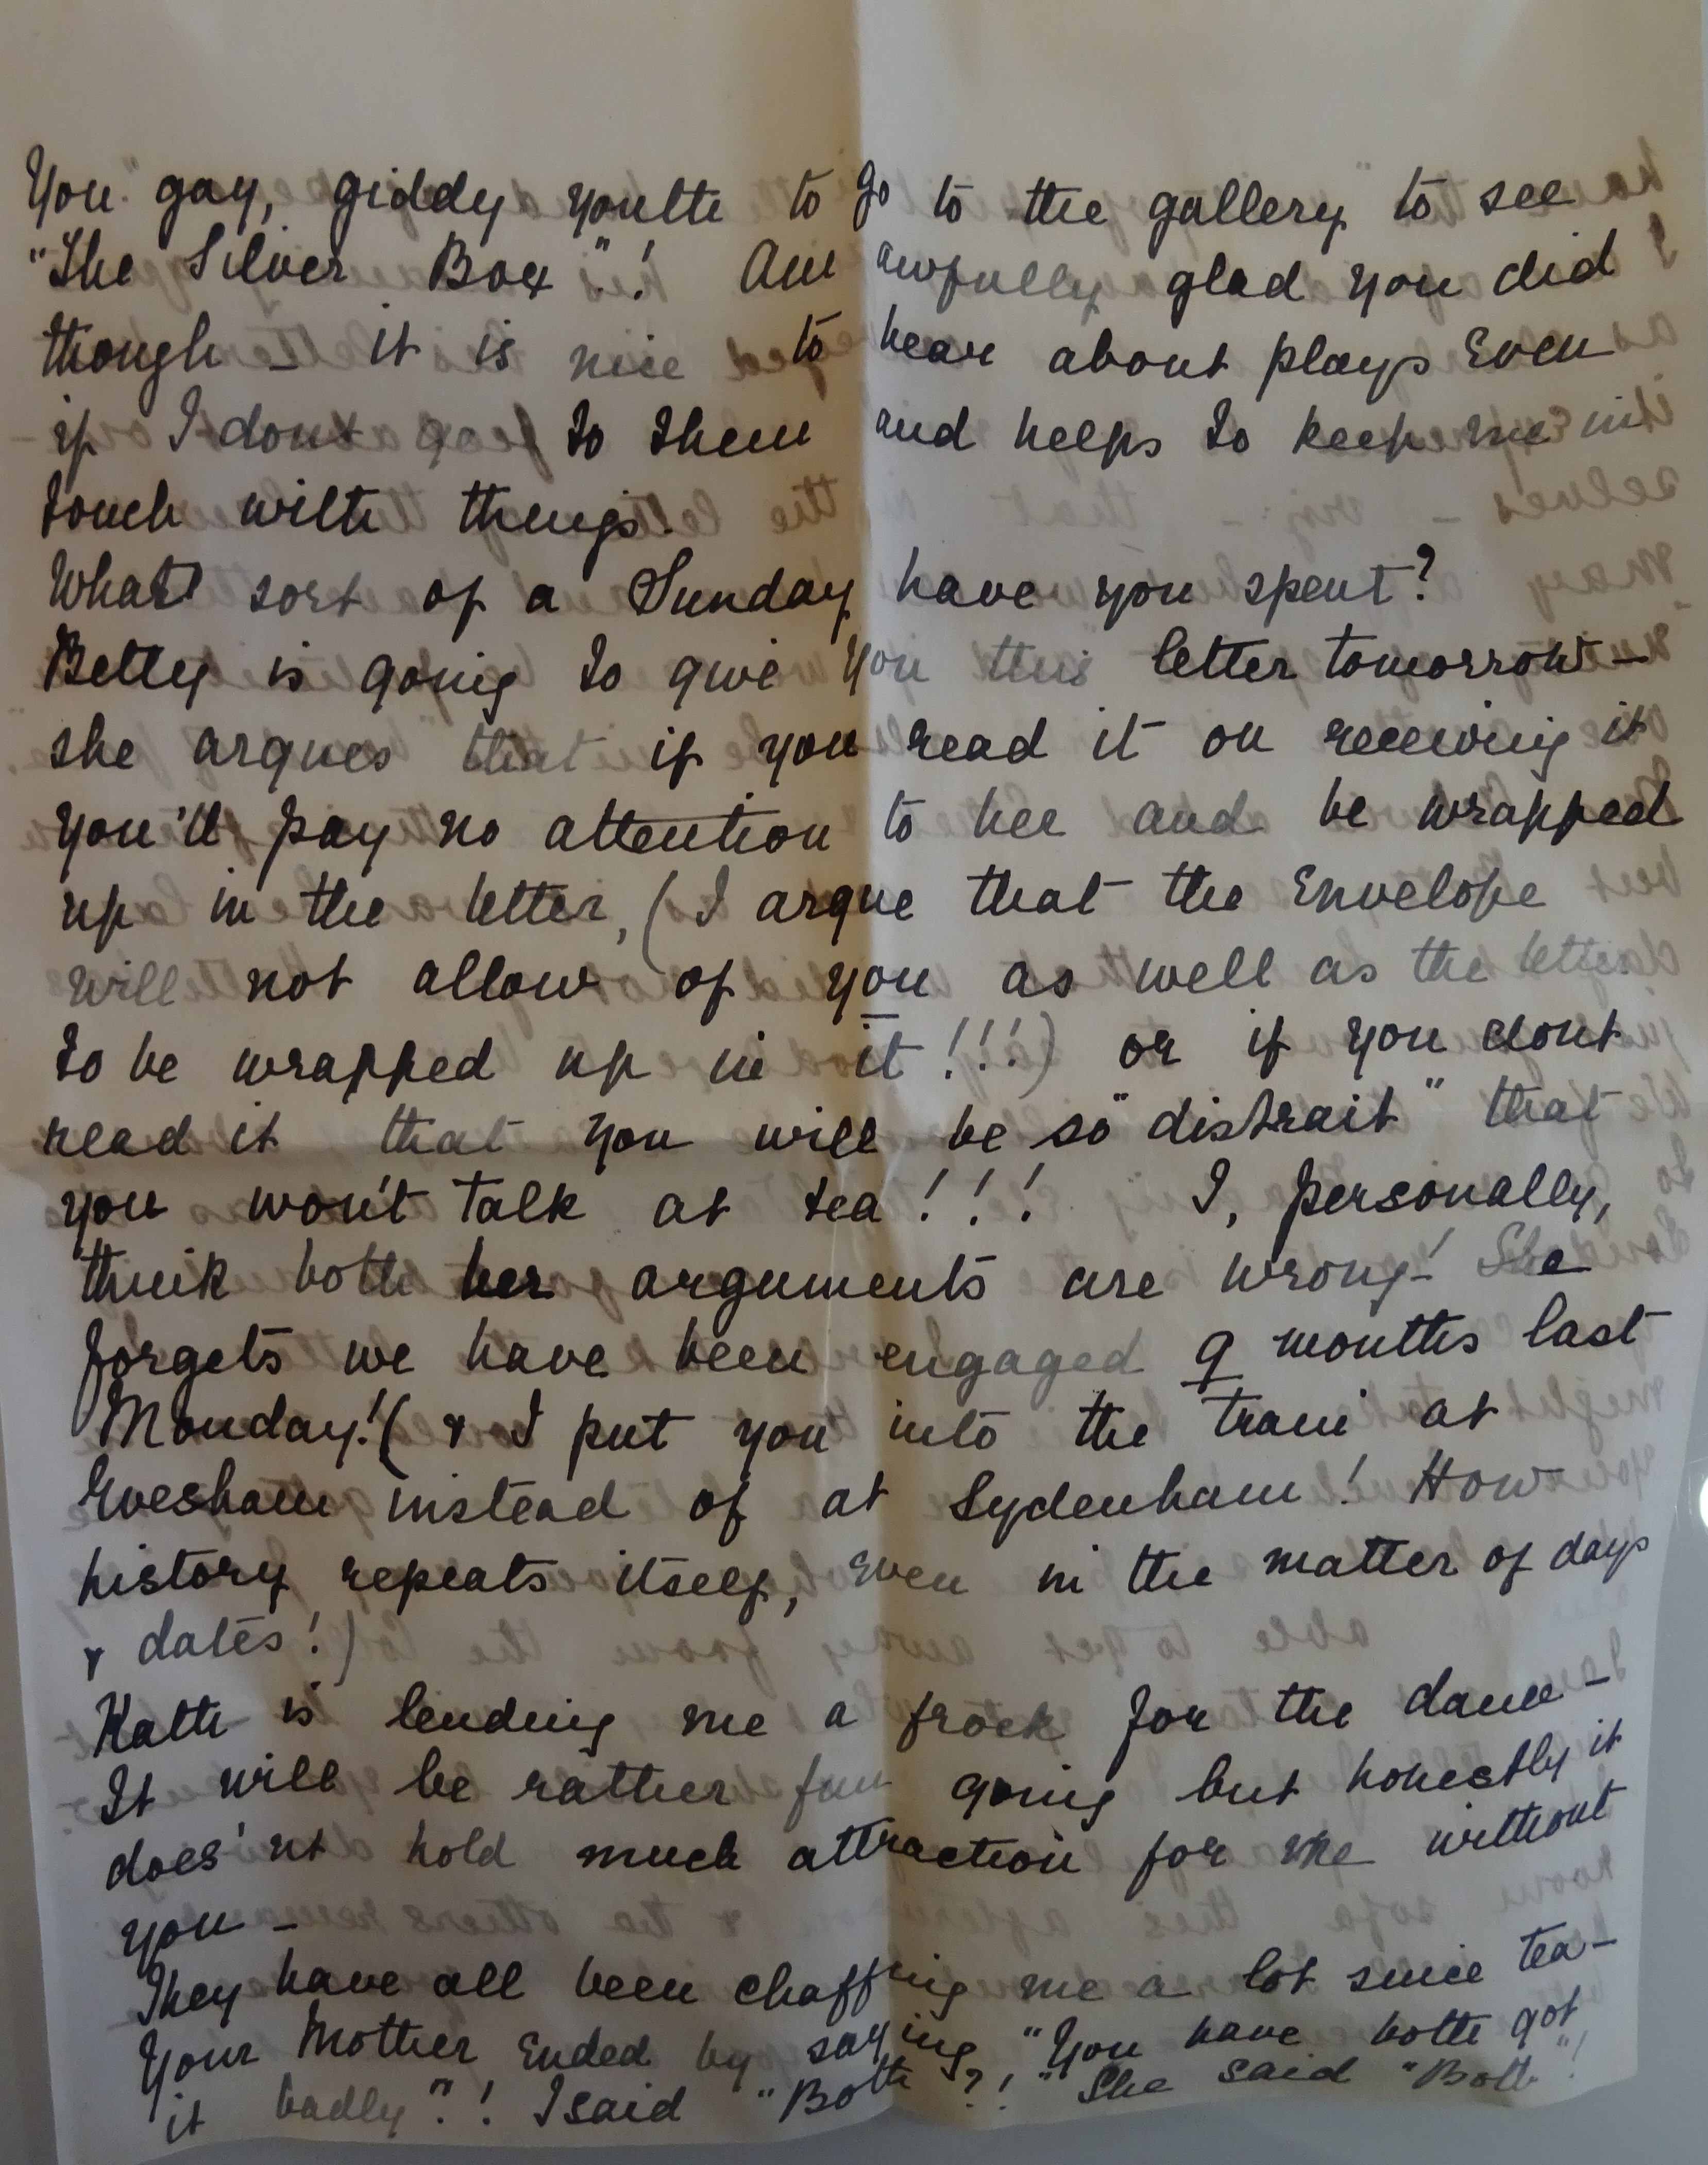 You gay, giddy youth to go to the gallery to see
"The Silver Box"! Am awfully glad you did
though – it is nice to hear about plays even
if I dont go to them and helps to keep me in
touch with things.
What sort of a Sunday have you spent?
Betty is going to give you this letter tomorrow –
she argues that if you read it on receiving it
you'll pay no attention to her and be wrapped
up in the letter, (I argue that the envelope
will not allow of you as well as the letter
to be wrapped up in it!!!) or if you dont
read it that you will be so "distrait" that
you won't talk at tea!!! I, personally,
think both her arguments are wrong! She
forgets we have been engaged 9 months last
Monday! (& I put you into the train at
Evesham instead of at Sydenham! How
history repeats itself, even in the matter of days
& dates!)
Kath is lending me a frock for the dance –
It will be rather fun going but honestly it
does'nt hold much attraction for me without
you –
They have all been chaffing me a lot since tea –
Your Mother ended by saying "You have both got
it badly"! I said "Both?!" She said "Both"!